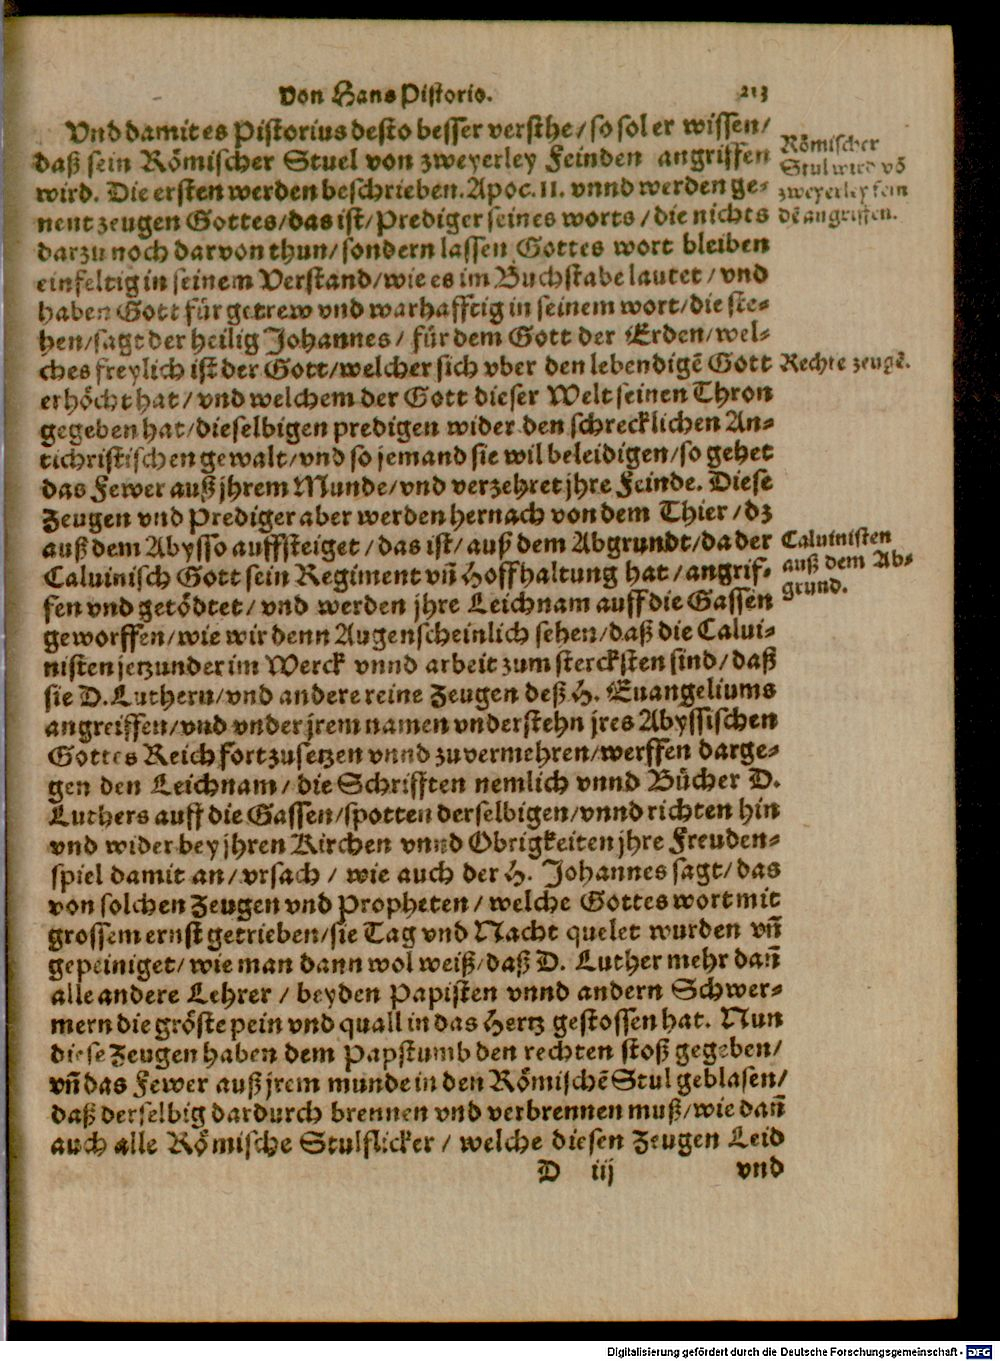 Von Hans Pistorio. 213
Vnd damit es Pistorius desto besser versthe/ so sol er wissen/
daß sein Römischer Stuel von zweyerley Feinden angriffen
wird. Die ersten werden beschrieben. Apoc. 11. vnnd werden ge-
nent zeugen Gottes/ das ist/ Prediger seines worts / die nichts
darzu noch darvon thun/ sondern lassen Gottes wort bleiben
einfeltig in seinem Verstand/ wie es im Buchstabe lautet / vnd
haben Gott für getrew vnd warhafftig in seinem wort/ die ste-
hen/ sagt der heilig Johannes / für dem Gott der Erden/ wel-
ches freylich ist der Gott/ welcher sich vber den lebendigē Gott
erhöcht hat / vnd welchem der Gott dieser Welt seinen Thron
gegeben hat/ dieselbigen predigen wider den schrecklichen An-
tichristischen gewalt/ vnd so jemand sie wil beleidigen/ so gehet
das Fewer auß jhrem Munde/ vnd verzehret jhre Feinde. Diese
Zeugen vnd Prediger aber werden hernach von dem Thier / dz
auß dem Abysso auffsteiget / das ist/ auß dem Abgrundt/ da der
Caluinisch Gott sein Regiment vñ Hoffhaltung hat / angrif-
fen vnd getödtet / vnd werden jhre Leichnam auff die Gassen
geworffen/ wie wir denn Augenscheinlich sehen/ daß die Calui-
nisten jetzunder im Werck vnnd arbeit zum stercksten sind/ daß
sie D. Luthern/ vnd andere reine Zeugen deß H. Euangeliums
angreiffen/ vnd vnder jrem namen vnderstehn jres Abyssischen
Gottes Reich fortzusetzen vnnd zuvermehren/ werffen darge-
gen den Leichnam / die Schrifften nemlich vnnd Bücher D.
Luthers auff die Gassen/ spotten derselbigen/ vnnd richten hin
vnd wider bey jhren Kirchen vnnd Obrigkeiten jhre Freuden-
spiel damit an/ vrsach / wie auch der H. Johannes sagt/ das
von solchen Zeugen vnd Propheten / welche Gottes wort mit
grossem ernst getrieben/ sie Tag vnd Nacht quelet wurden vñ
gepeiniget/ wie man dann wol weiß/ daß D. Luther mehr dañ
alle andere Lehrer / beyden Papisten vnnd andern Schwer-
mern die gröste pein vnd quall in das Hertz gestossen hat. Nun
diese Zeugen haben dem Papstumb den rechten stoß gegeben/
vñ das Fewer auß jrem munde in den Römischē Stul geblasen/
daß derselbig dardurch brennen vnd verbrennen muß/ wie dañ
auch alle Römische Stulflicker / welche diesen Zeugen Leid
D iij vnd
Römischer
Stul wird vō
zweyerley fein
dē angriffen.
Rechte zeugē.
Caluinisten
auß dem Ab-
grund.
Digitalisierung gefördert durch die Deutsche Forschungsgemeinschaft - DFG